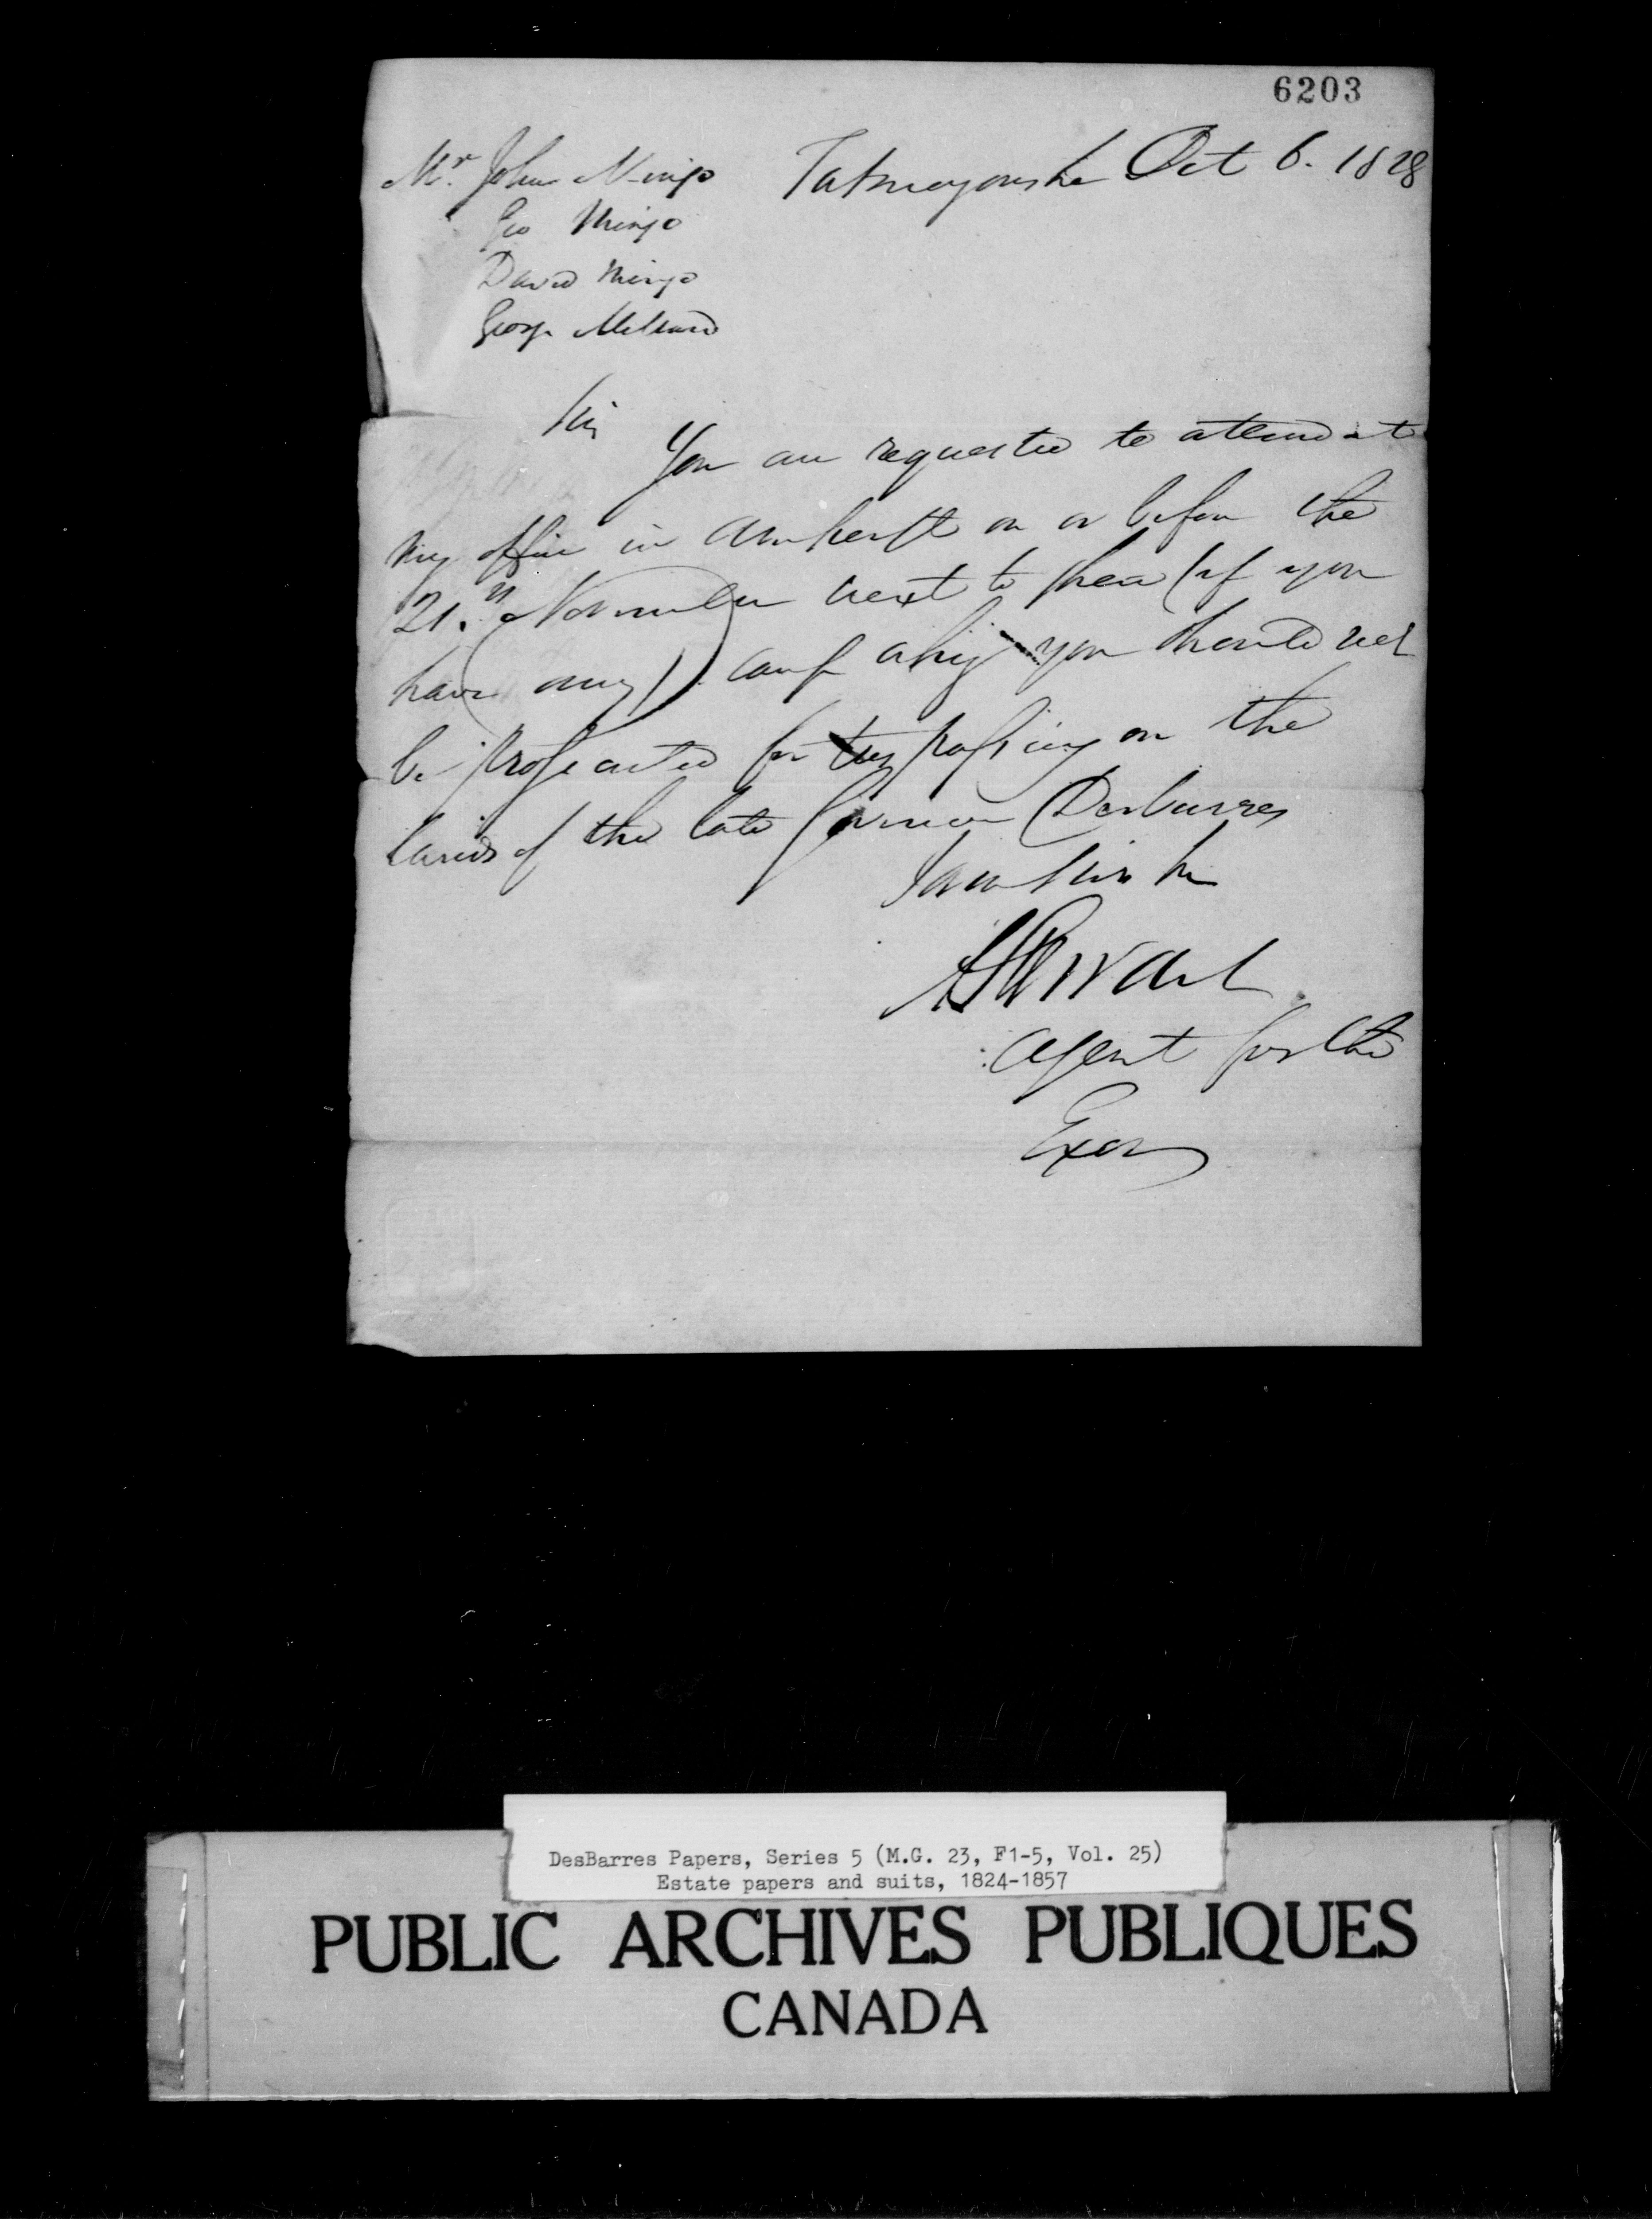 6203
Mr. John Mingo Tatmagoushe Oct 6. 1828
Geo Mingo
David Mingo
George Millard
Sir
You are requested to attend at
my office in Amherst on or before the
21. November next to shew (if you
have any) cause why you should not
be prosecuted for trespassing on the
lands of the late Governor Desbarres
I am Sir
A Stewart
Agent for the
Exors
DesBarres Papers, Series 5 (M.G. 23, F1-5, Vol. 25)
Estate papers and suits, 1824-1857
PUBLIC ARCHIVES PUBLIQUES
CANADA